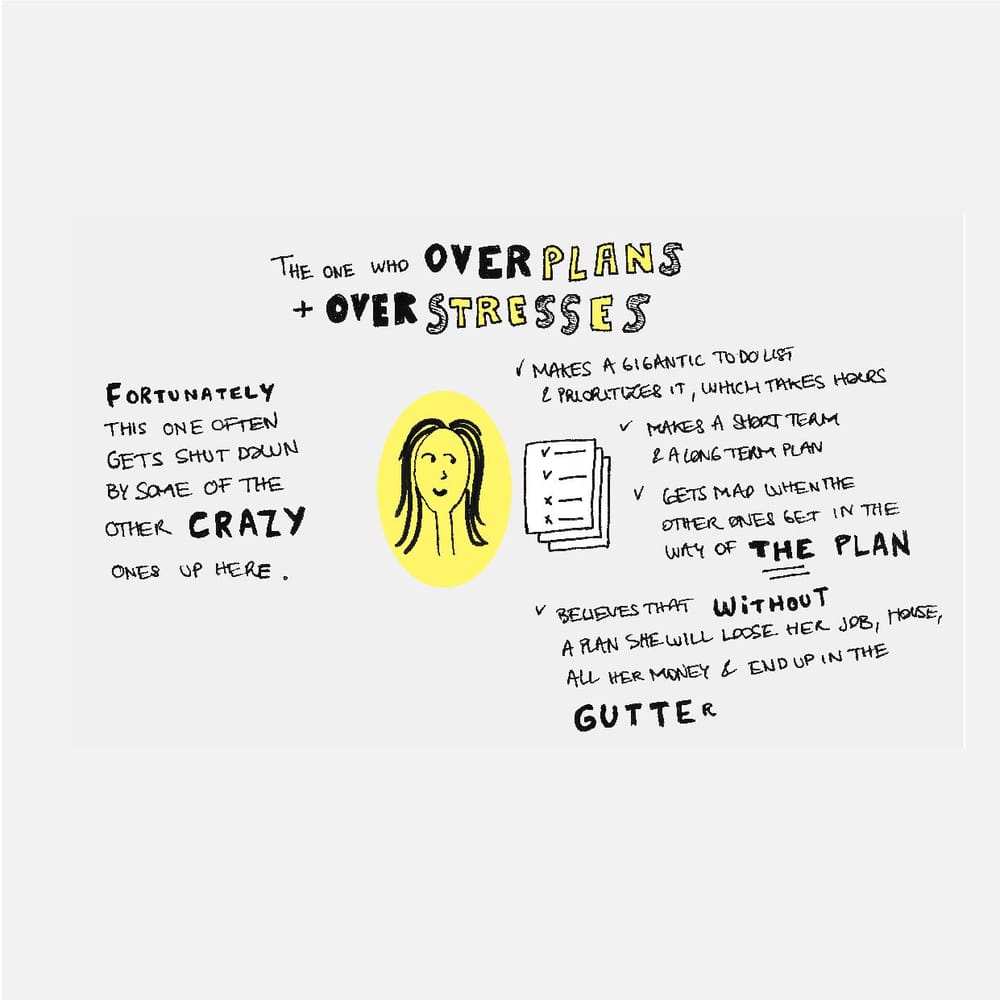 THE ONE WHO OVERPLANS
+ OVERSTRESSES
FORTUNATELY
THIS ONE OFTEN
GETS SHUT DOWN
BY SOME OF THE
OTHER CRAZY
ONES UP HERE.
✓ MAKES A GIGANTIC TO DO LIST
& PRIORITIZES IT, WHICH TAKES HOURS
✓ MAKES A SHORT TERM
& A LONG TERM PLAN
✓ GETS MAD WHEN THE
OTHER ONES GET IN THE
WAY OF THE PLAN
✓ BELIEVES THAT WITHOUT
A PLAN SHE WILL LOOSE HER JOB, HOUSE,
ALL HER MONEY & END UP IN THE
GUTTER